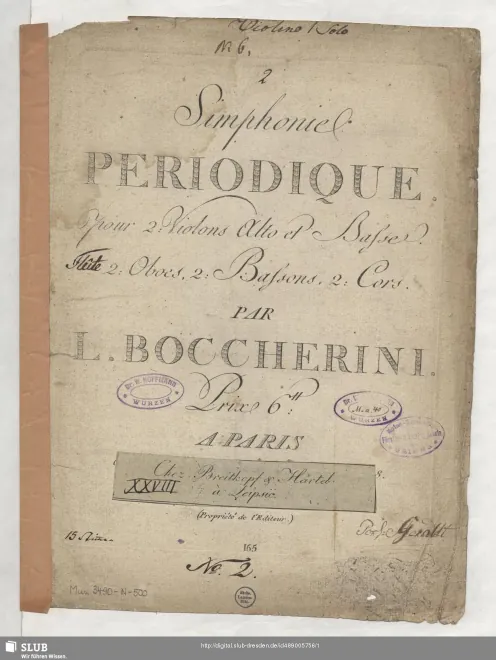 Violino 1 Solo
No 6.
2
Simphonie
PERIODIQUE.
pour 2: Violons Alto et Basse.
Flûte 2: Oboes, 2: Bassons, 2: Cors.
PAR
L. BOCCHERINI.
Prix 6#
A PARIS
Chez Breitkopf & Härtel
XXVIII
à Leipsic
S.
(Propriété de l'Editeur.)
15
165
No. 2.
WURZEN
WURZEN
Mus. 3490-N-500
SLUB
Wir führen Wissen.
http://digital.slub-dresden.de/id489005756/1